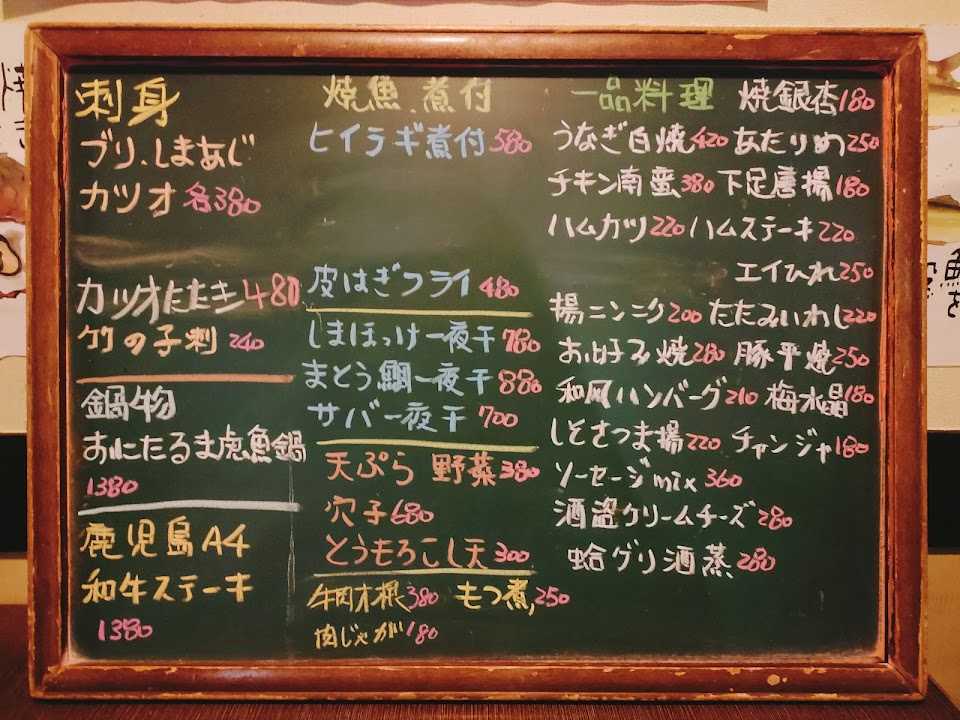 刺身
ブリ、しまあじ
カツオ 各380
カツオたたき480
竹の子刺 240
鍋物
おにたるま虎魚鍋
1380
鹿児島A4
和牛ステーキ
1380
焼魚 煮付
ヒイラギ煮付 580
皮はぎフライ 480
しまほっけ一夜干 780
まとう鯛一夜干 880
サバ一夜干 700
天ぷら 野菜380
穴子680
とうもろこし天300
牛肉大根380 もつ煮250
肉じゃが180
一品料理 焼銀杏180
うなぎ白焼420 あたりめ250
チキン南蛮380 下足唐揚180
ハムカツ220 ハムステーキ220
エイひれ250
揚ニンニク200 たたみいわし220
お好み焼280 豚平焼250
和風ハンバーグ210 梅水晶180
しそさつま揚220 チャンジャ180
ソーセージmix 360
酒盗クリームチーズ280
蛤グリ酒蒸280